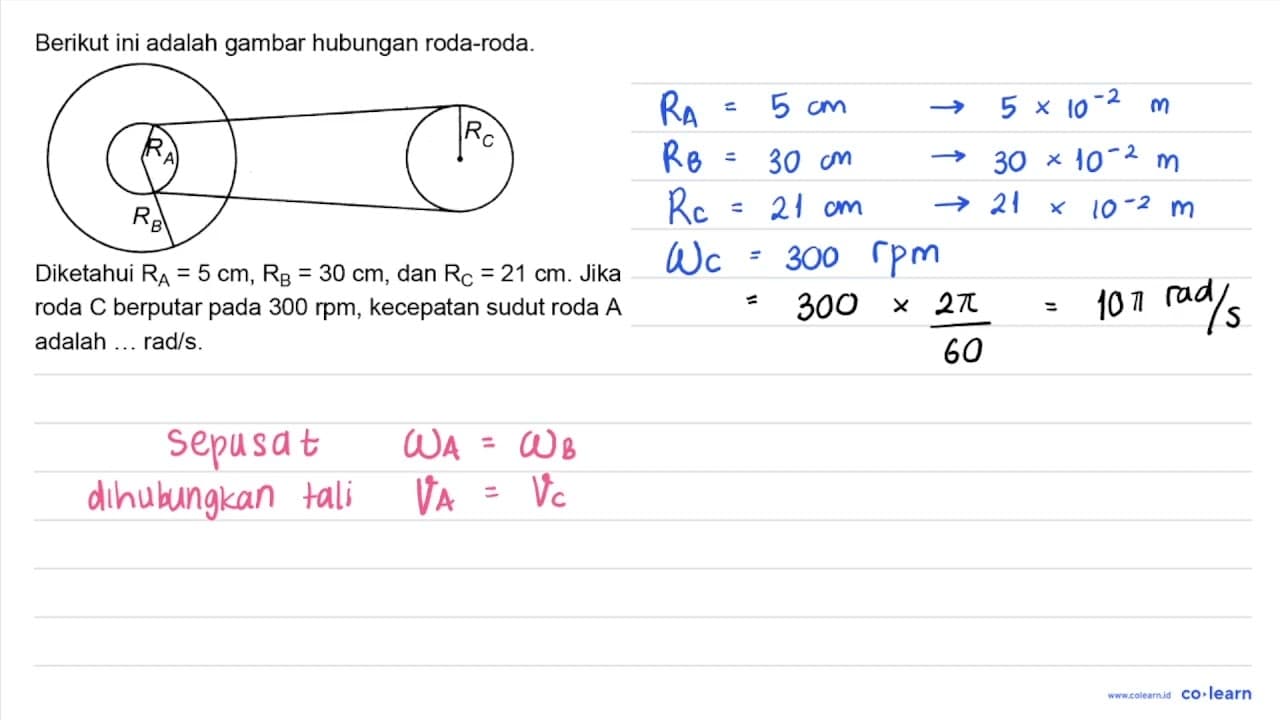 Berikut ini adalah gambar hubungan roda-roda.
R_A
R_B
R_C
Diketahui R_A = 5 cm, R_B = 30 cm, dan R_C = 21 cm. Jika
roda C berputar pada 300 rpm, kecepatan sudut roda A
adalah ... rad/s.
R_A = 5 cm → 5 × 10⁻² m
R_B = 30 cm → 30 × 10⁻² m
R_C = 21 cm → 21 × 10⁻² m
ω_C = 300 rpm
= 300 × 2π/60 = 10π rad/s
sepusat ω_A = ω_B
dihubungkan tali V_A = V_C
www.colearn.id co·learn